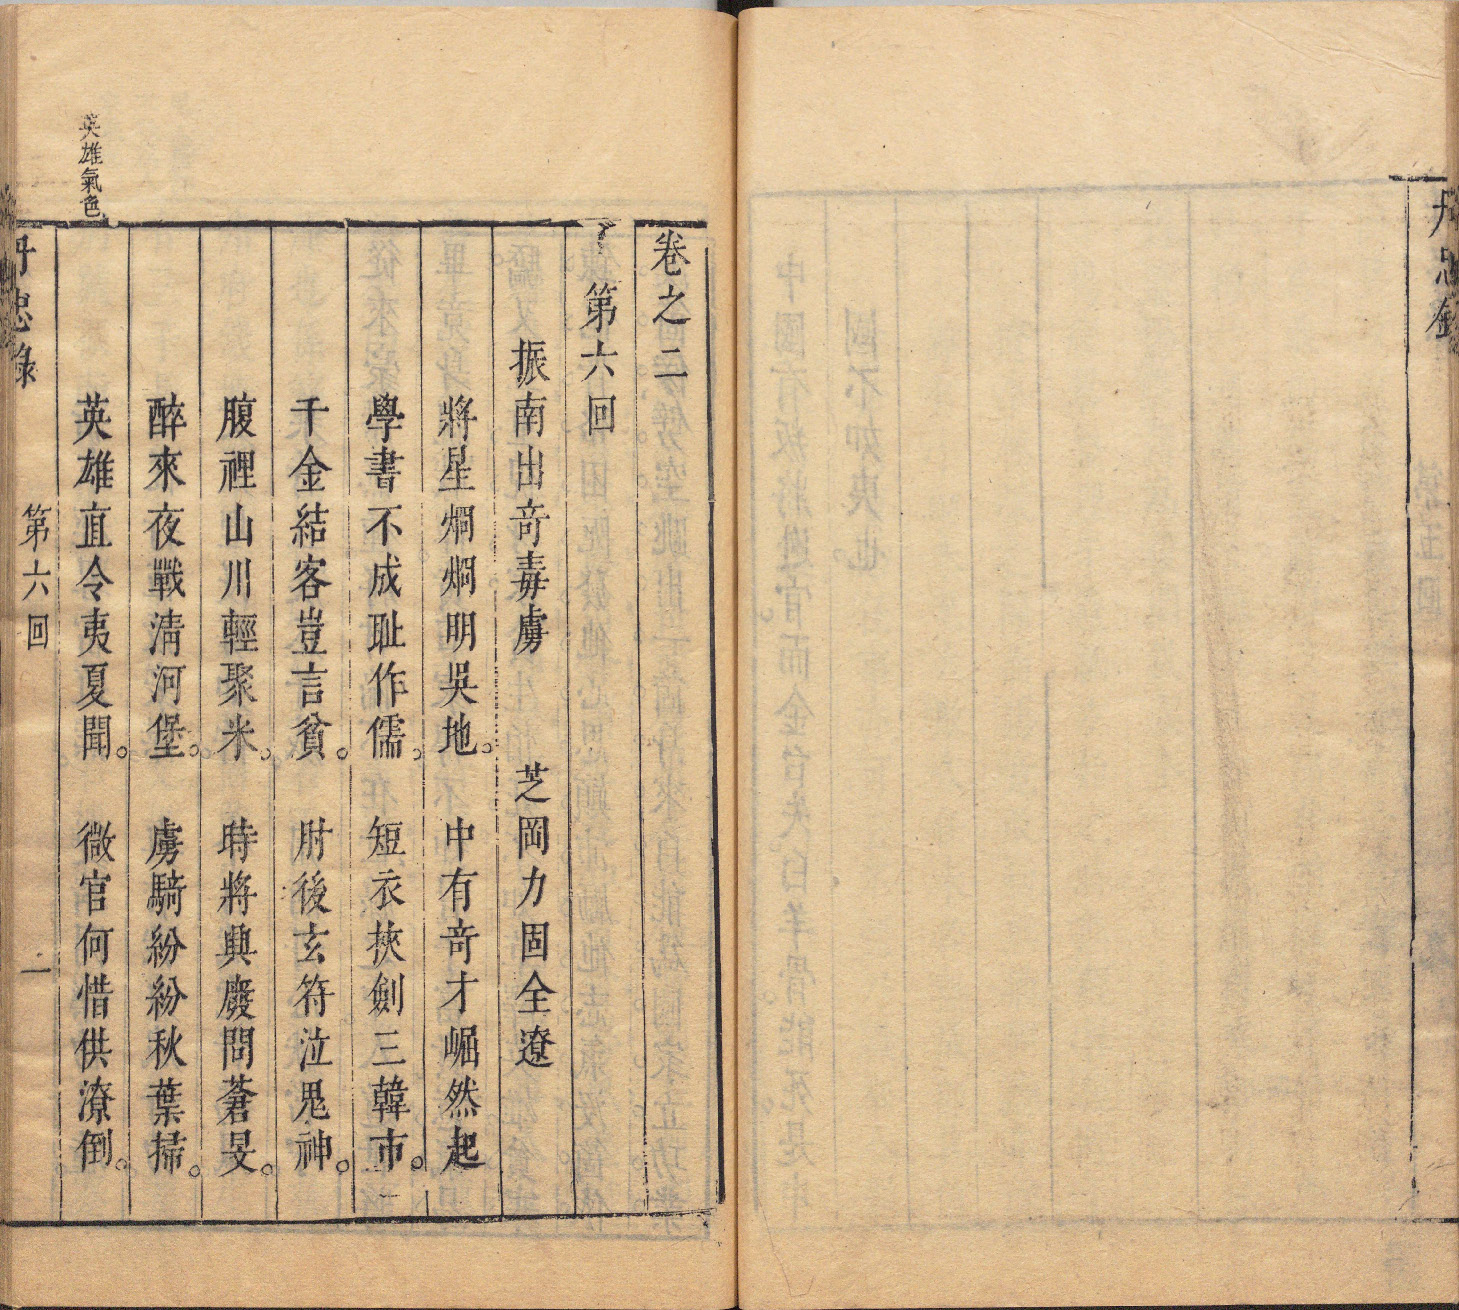 丹忠錄
卷之二
第六回
振南出竒毒虜　芝岡力固全遼
將星烱烱明吳地。中有竒才崛然起
學書不成耻作儒。短衣挾劍三韓市。
千金結客豈言貧。肘後玄符泣鬼神。
腹裡山川輕聚米。時將興廢問蒼旻。
醉來夜戰清河堡。虜騎紛紛秋葉掃。
英雄直令夷夏聞。微官何惜供潦倒。
英雄氣色
丹忠錄　第六回　一